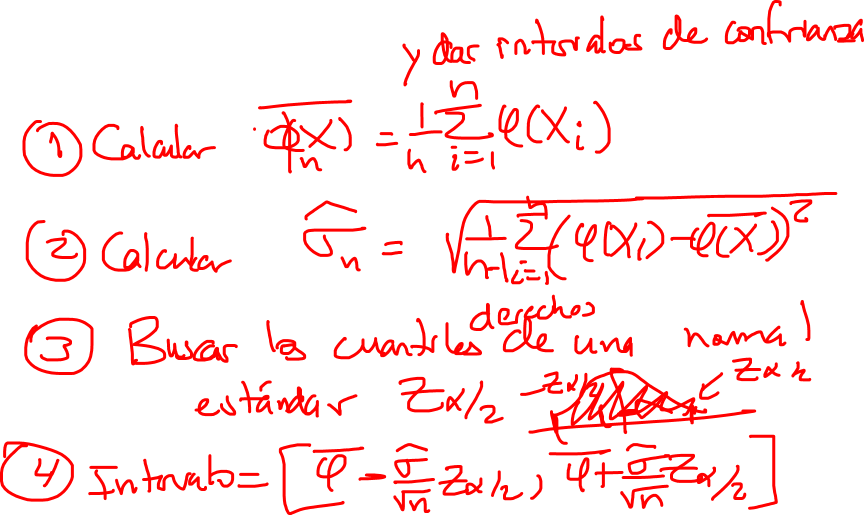 y dar intervalos de confianza
① Calcular \overline{φ_n(X)} = \frac{1}{n} \sum_{i=1}^{n} φ(X_i)
② Calcular \widehat{σ_n} = \sqrt{\frac{1}{n-1} \sum_{i=1}^{n} (φ(X_i) - \overline{φ(X)})^2}
③ Buscar los cuantiles derechos de una normal
estándar Z_{α/2} -Z_{α/2} Z_{α/2}
④ Intervalo = [\overline{φ} - \frac{\widehat{σ}}{\sqrt{n}} Z_{α/2}, \overline{φ} + \frac{\widehat{σ}}{\sqrt{n}} Z_{α/2}]